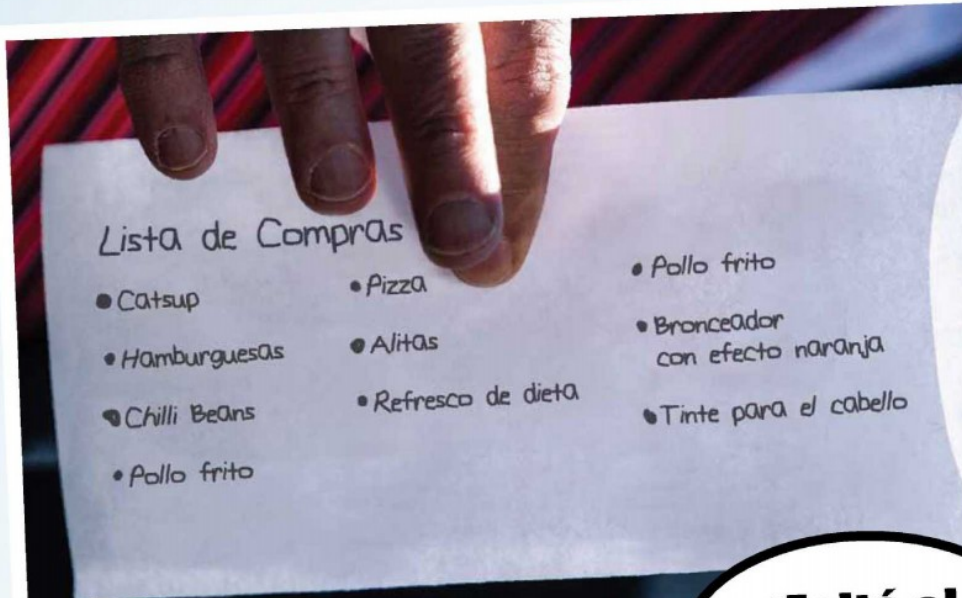 Lista de Compras
• Catsup
• Hamburguesas
• Chilli Beans
• Pollo frito
• Pizza
• Alitas
• Refresco de dieta
• Pollo frito
• Bronceador
con efecto naranja
• Tinte para el cabello